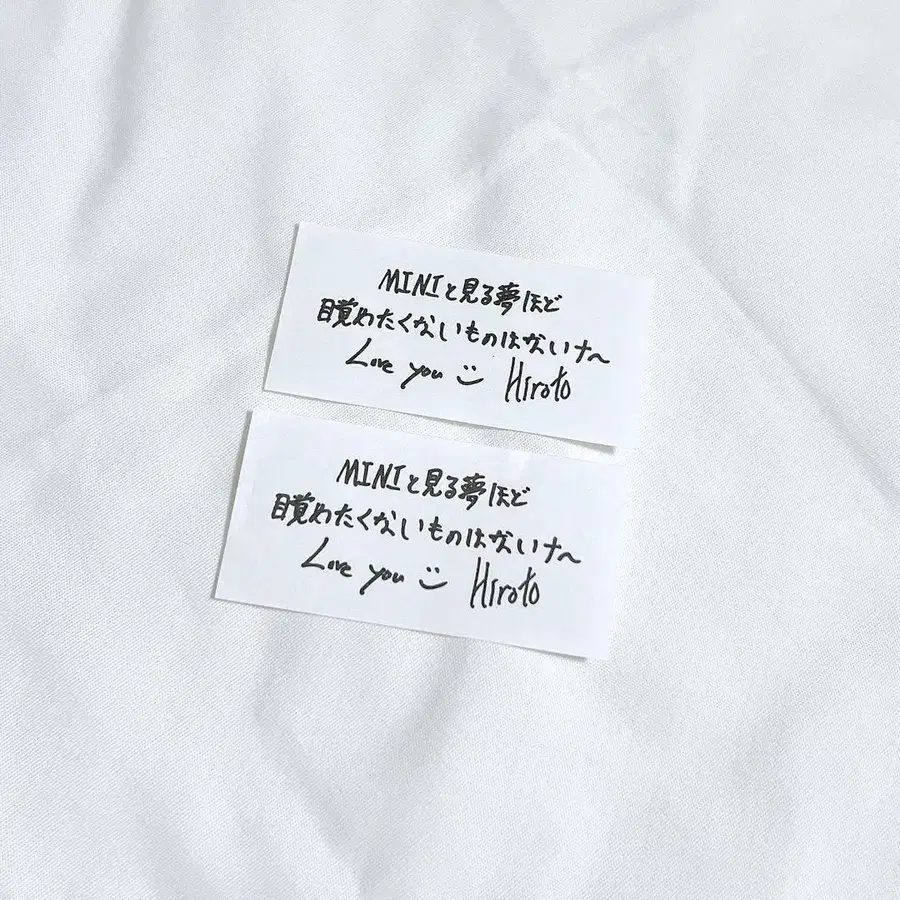 MINIと見る夢ほど
目覚めたくないものはないナ〜
Love you Hiroto
MINIと見る夢ほど
目覚めたくないものはないナ〜
Love you Hiroto